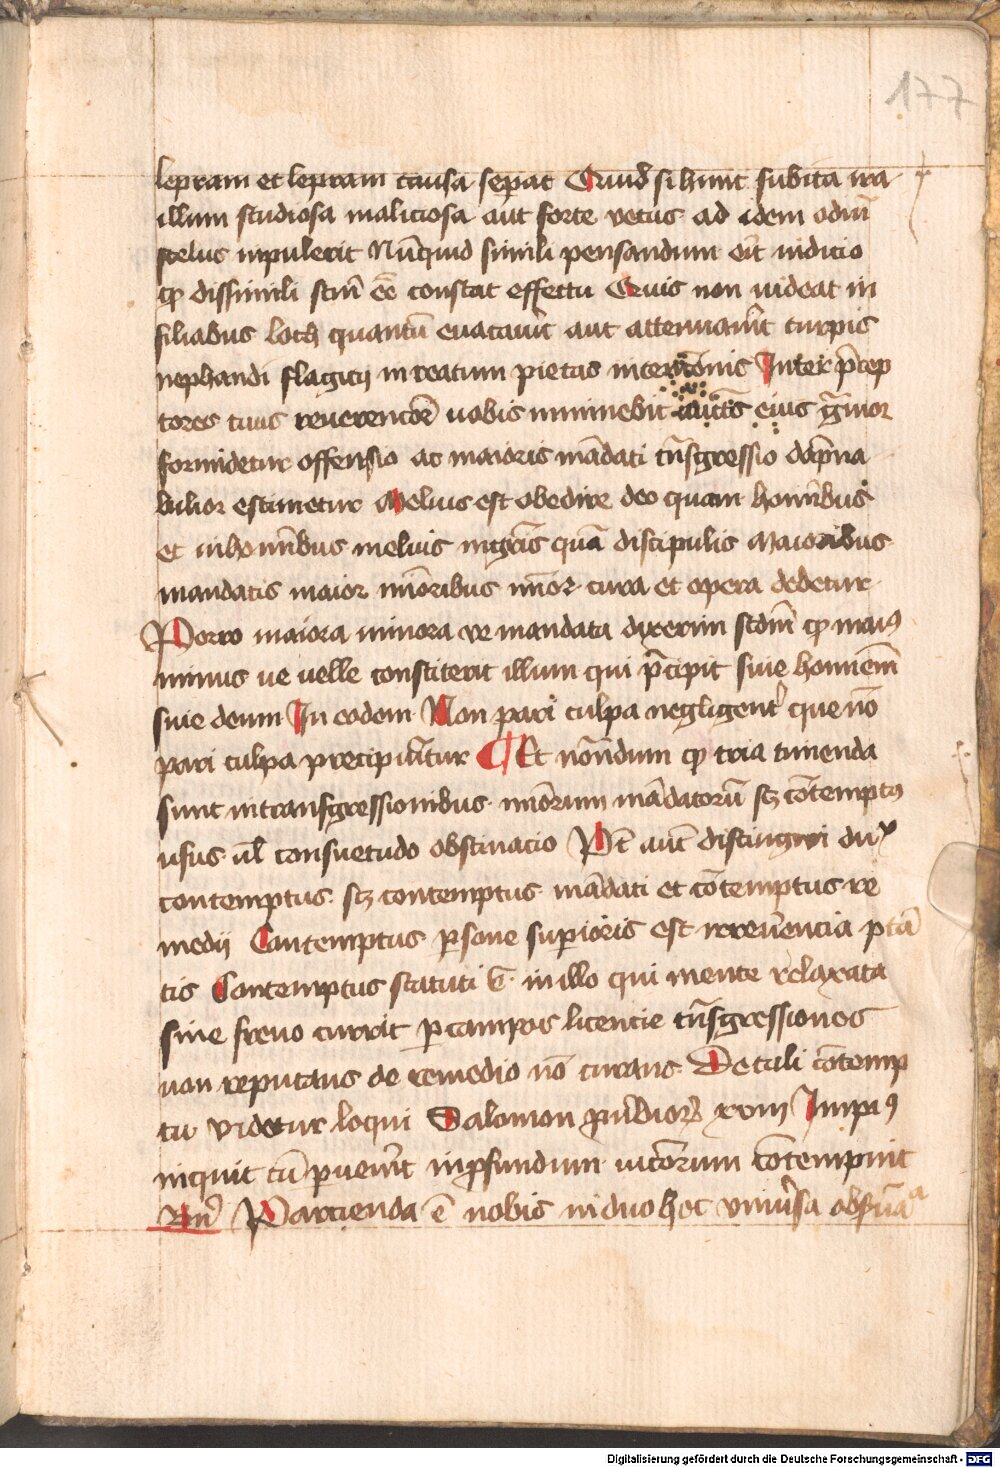 177
lepram et lepram causa seperat Quid si hunc subita ira
illum studiosa maliciosa aut forte vetus ad idem odiū
scelus inpulerit Nūquid simili pensandum eīt iudicio
ꝙ dissimili scīm eē constat effectu Quis non uideat in
filiabus loth quantū euacauīt aut attenuauīt turpis
nephandi flagicij in reatum pietas intenōnis Inter p̄cep
tores tuus reuerencōr uobis imminebit eius ḡuior
formidetur offensio ac maioris mādati tn̄sgressio dāpna
bilior estimetur Melius est obedire deo quam hominībus
et in hominībus melius mgr̄is quā discipulis Maioribus
mandatis maior mīoribus mīor cura et opera dedetur
Porro maiora minora ve mandata dixerim scdm̄ ꝙ maiꝯ
minus ue uelle constiterit illum qui p̄cipit siue hominēm
siue deum In eodem Non pari culpa negligent᷑ que nō
pari culpa precipiūtur Et notāndum ꝙ tria timenda
sunt in transgressionibus mīorum mādatorū scꝫ cōtemptꝯ
usus ul̄ consuetudo obstinacio Pt̄ aut̄ distingwi dux
contemptus scꝫ contemptus mādati et cōtemptus re
medij Contemptus ꝑsone suꝑioris est irreu̅encia ptā
tis Contemptus statuti ē in illo qui mente relaxata
sine freno currit ꝑ campos licencie tn̄sgressiones
non reputans de remedio nō curans De tali cōtemp
tu videtur loqui Salomon ꝓu̅bior̄ xviij Impiꝯ
inquit cū ꝑuenīt in ꝓfundum uicōrum cōtempnit
Bn̄ Parcienda ē nobis in duo hec uniu̅sa obs̄ua